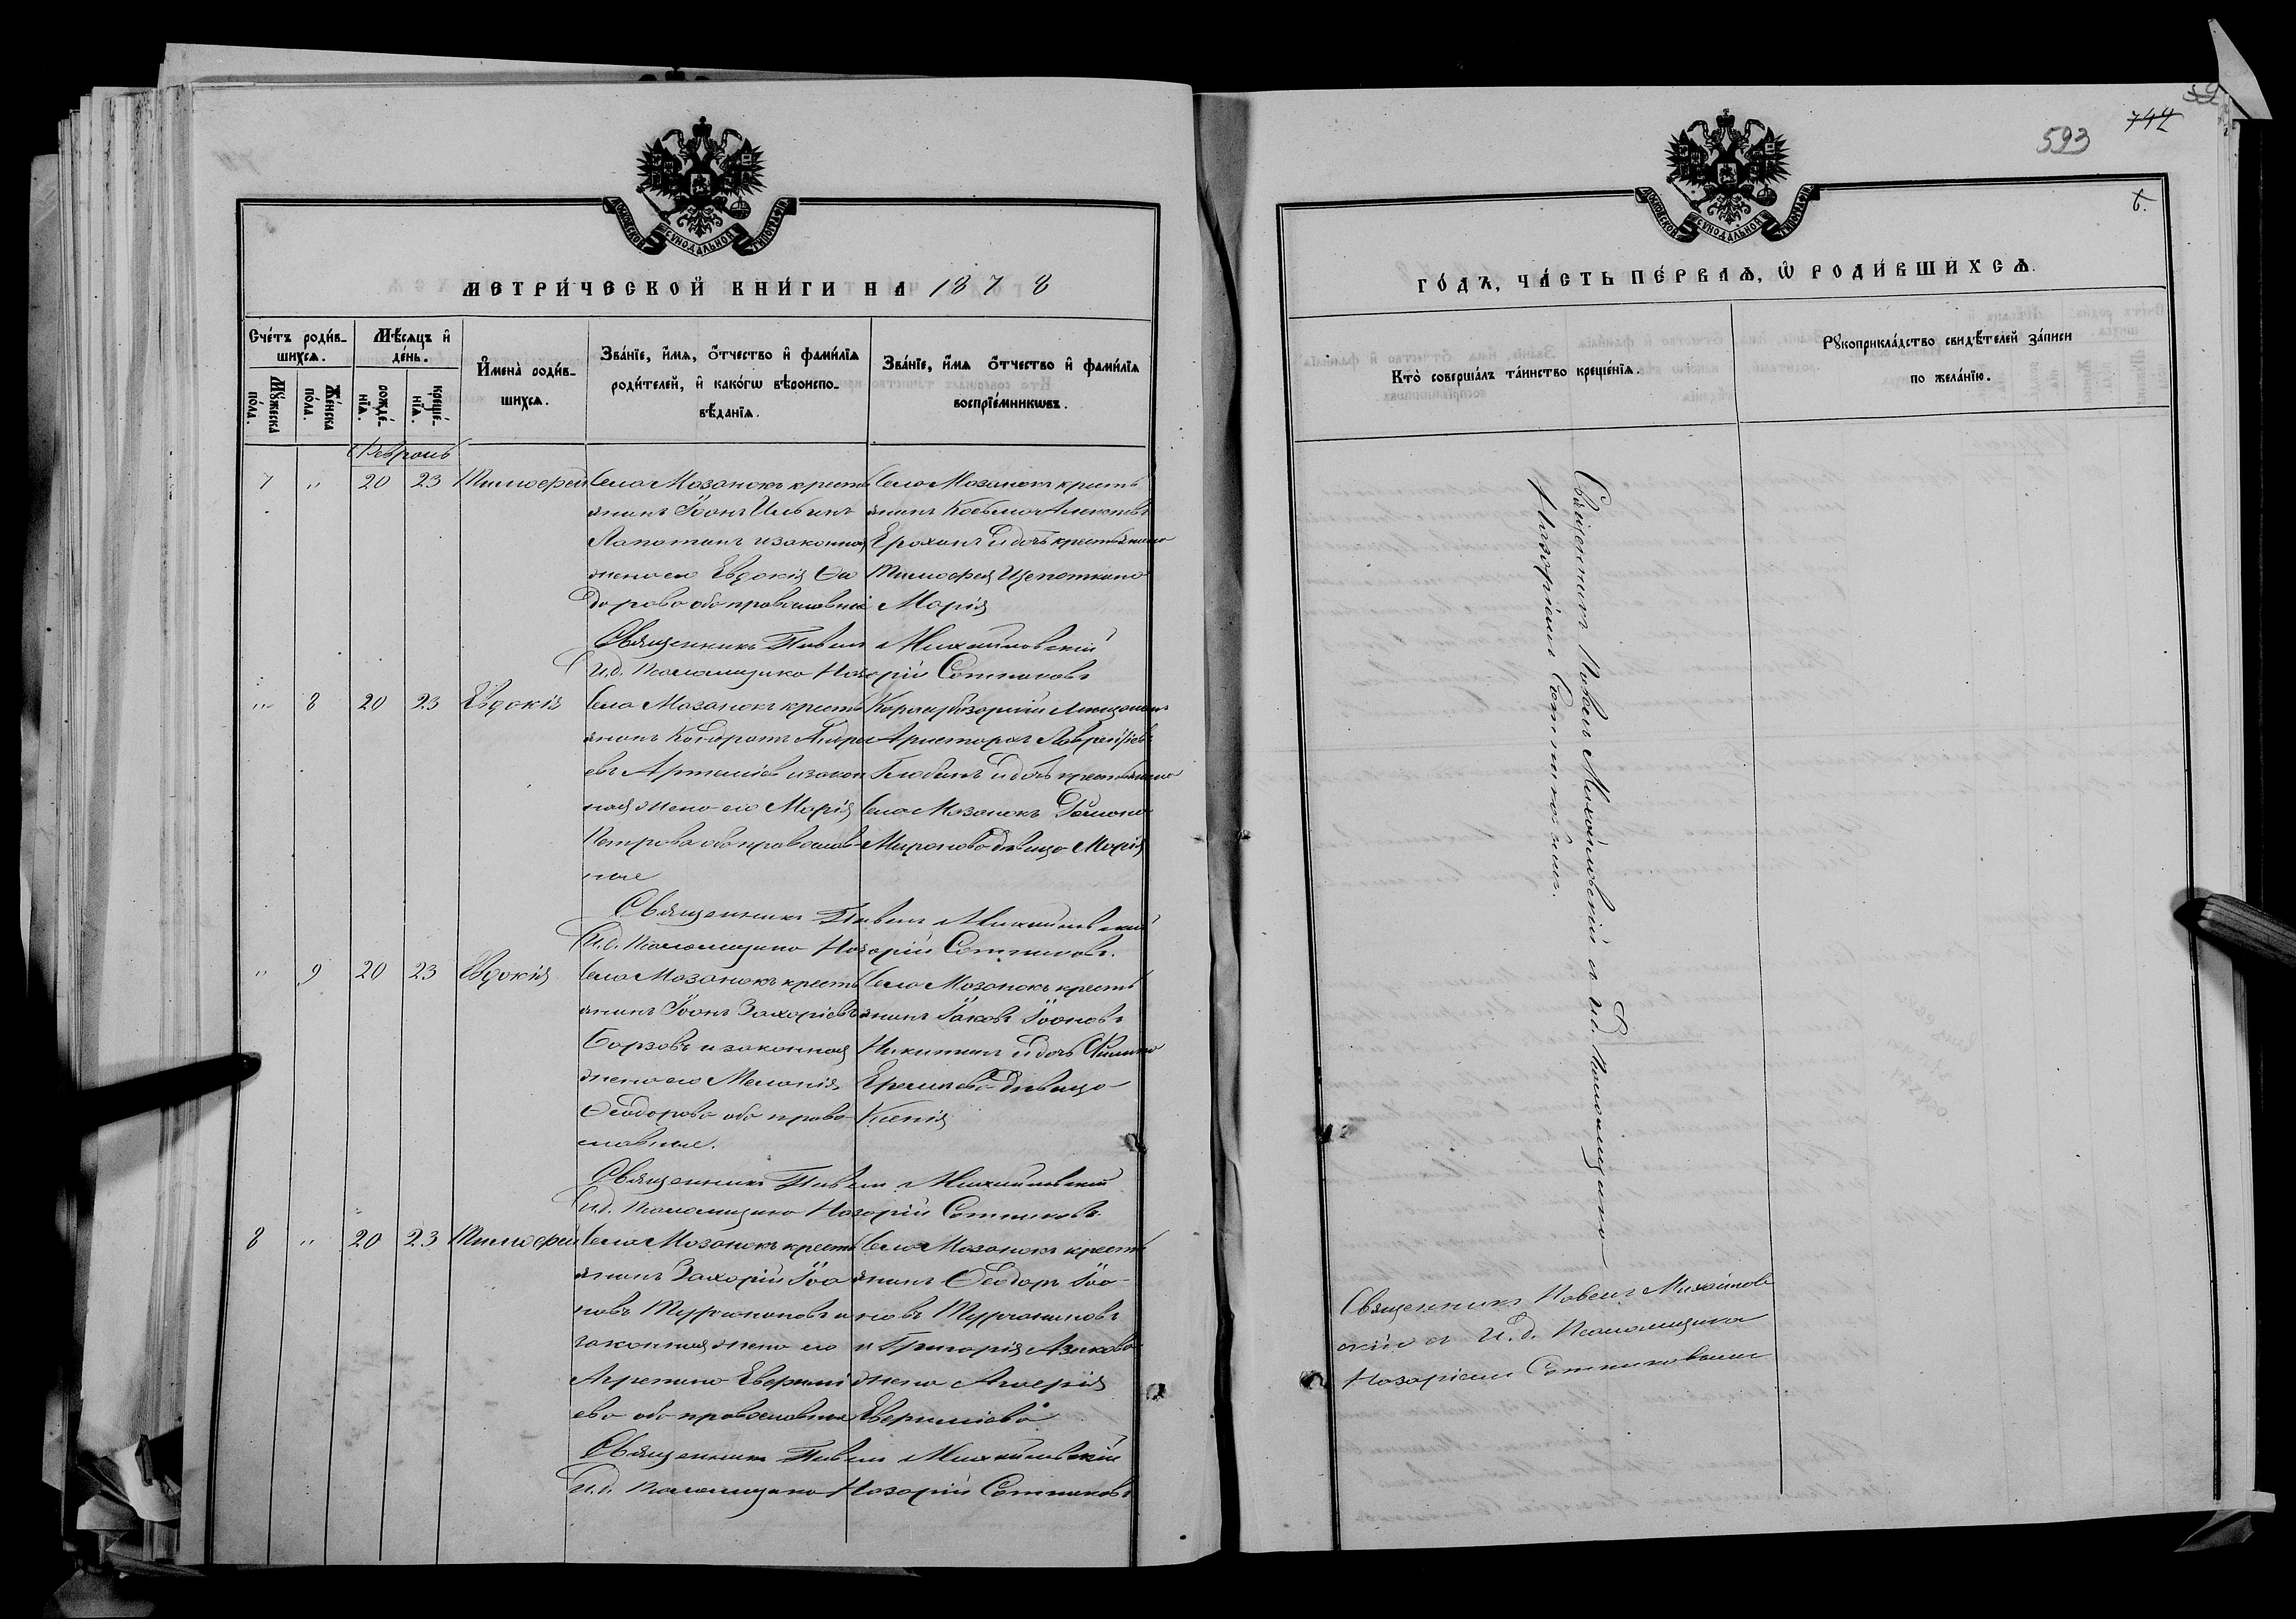 593
744
6.
МОСКОВСКОЙ СУНОДАЛЬНОЙ ТИПОГРАФІИ
МЕТРИ́ЧЕСКОЙ КНИ́ГИ НА 1878
Сче́тъ роди́в-
шихсѧ.
Мѣ́сѧцъ и҆
де́нь.
И҆мена̀ роди́в-
шихсѧ.
Зва́нїе, и҆́мѧ, ѻ҆́тчество и҆ фами́лїѧ
роди́телей, и҆ како́гѡ вѣроиспо-
вѣ́данїѧ.
Зва́нїе, и҆́мѧ ѻ҆́тчество и҆ фами́лїѧ
воспрїе́мникѡвъ.
Мꙋ́жеска
по́ла.
Же́нска
по́ла.
рожде́-
нїѧ.
креще́-
нїѧ.
Февраль
7 " 20 23 Тимофей
Села Мазанокъ кресть
янинъ Іоанъ Ильинъ
Лапатинъ и законная
жена его Евдокія Ѳео
дорова оба православніе
Села Мазанокъ кресть
янинъ Косьма
Ерохинъ и дочь крестьянина
Тимофея Щепоткина
Марія
Священникъ Павелъ Михайловскій
И.д. Псаломщика Назарій Сотниковъ
" 8 20 23 Евдокія
Села Мазанокъ кресть
янинъ Кондратъ Андре
евъ Артемїев и закон
ная жена его Марія
Петрова оба православ-
ные
Карасубазарскій мещанинъ
Глобинъ и дочь крестьянина
Села Мазанокъ
Миронова девица Марія
Священникъ Павелъ Михайловскій
И.д. Псаломщика Назарій Сотниковъ.
" 9 20 23 Евдокія
Села Мазанокъ кресть
янинъ Іоанъ Захаріевъ
Борзовъ и законная
жена его Меланія
Ѳеодорова оба право-
славные.
Села Мазанокъ кресть
янинъ Іаковъ Іоановъ
Никитинъ и дочь Филипа
девица
Ксенія
Священникъ Павелъ Михайловскій
И.д. Псаломщика Назарій Сотниковъ.
8 " 20 23 Тимофей
Села Мазанокъ кресть
янинъ Захарій Іоа
новъ Турчаниновъ и
законная жена его
Агрепина Евфимі
ева оба православные
Села Мазанокъ кресть
янинъ Ѳеодоръ Іоа-
новъ Турчаниновъ
и Григорія Азикова
жена
Евфиміева
Священникъ Павелъ Михайловскій
И.д. Псаломщика Назарій Сотниковъ
МОСКОВСКОЙ СУНОДАЛЬНОЙ ТИПОГРАФІИ
ГО́ДЪ, ЧА́СТЬ ПЕ́РВАѦ, Ѡ҆ РОДИ́ВШИХСѦ.
Кто̀ соверша́лъ та́инство креще́нїѧ.
Рꙋкоприкла́дство свидѣ́телей за́писи
по жела́нїю.
Священникъ Павелъ Михайловскій съ И.д. Псаломщика
Назаріемъ Сотниковымъ.
Священникъ Павелъ Михайлов
скій съ И.д. Псаломщика
Назаріемъ Сотниковымъ